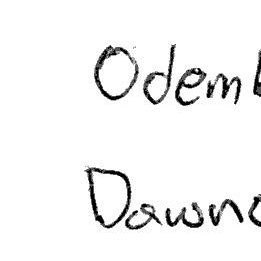 Odem
Dawn